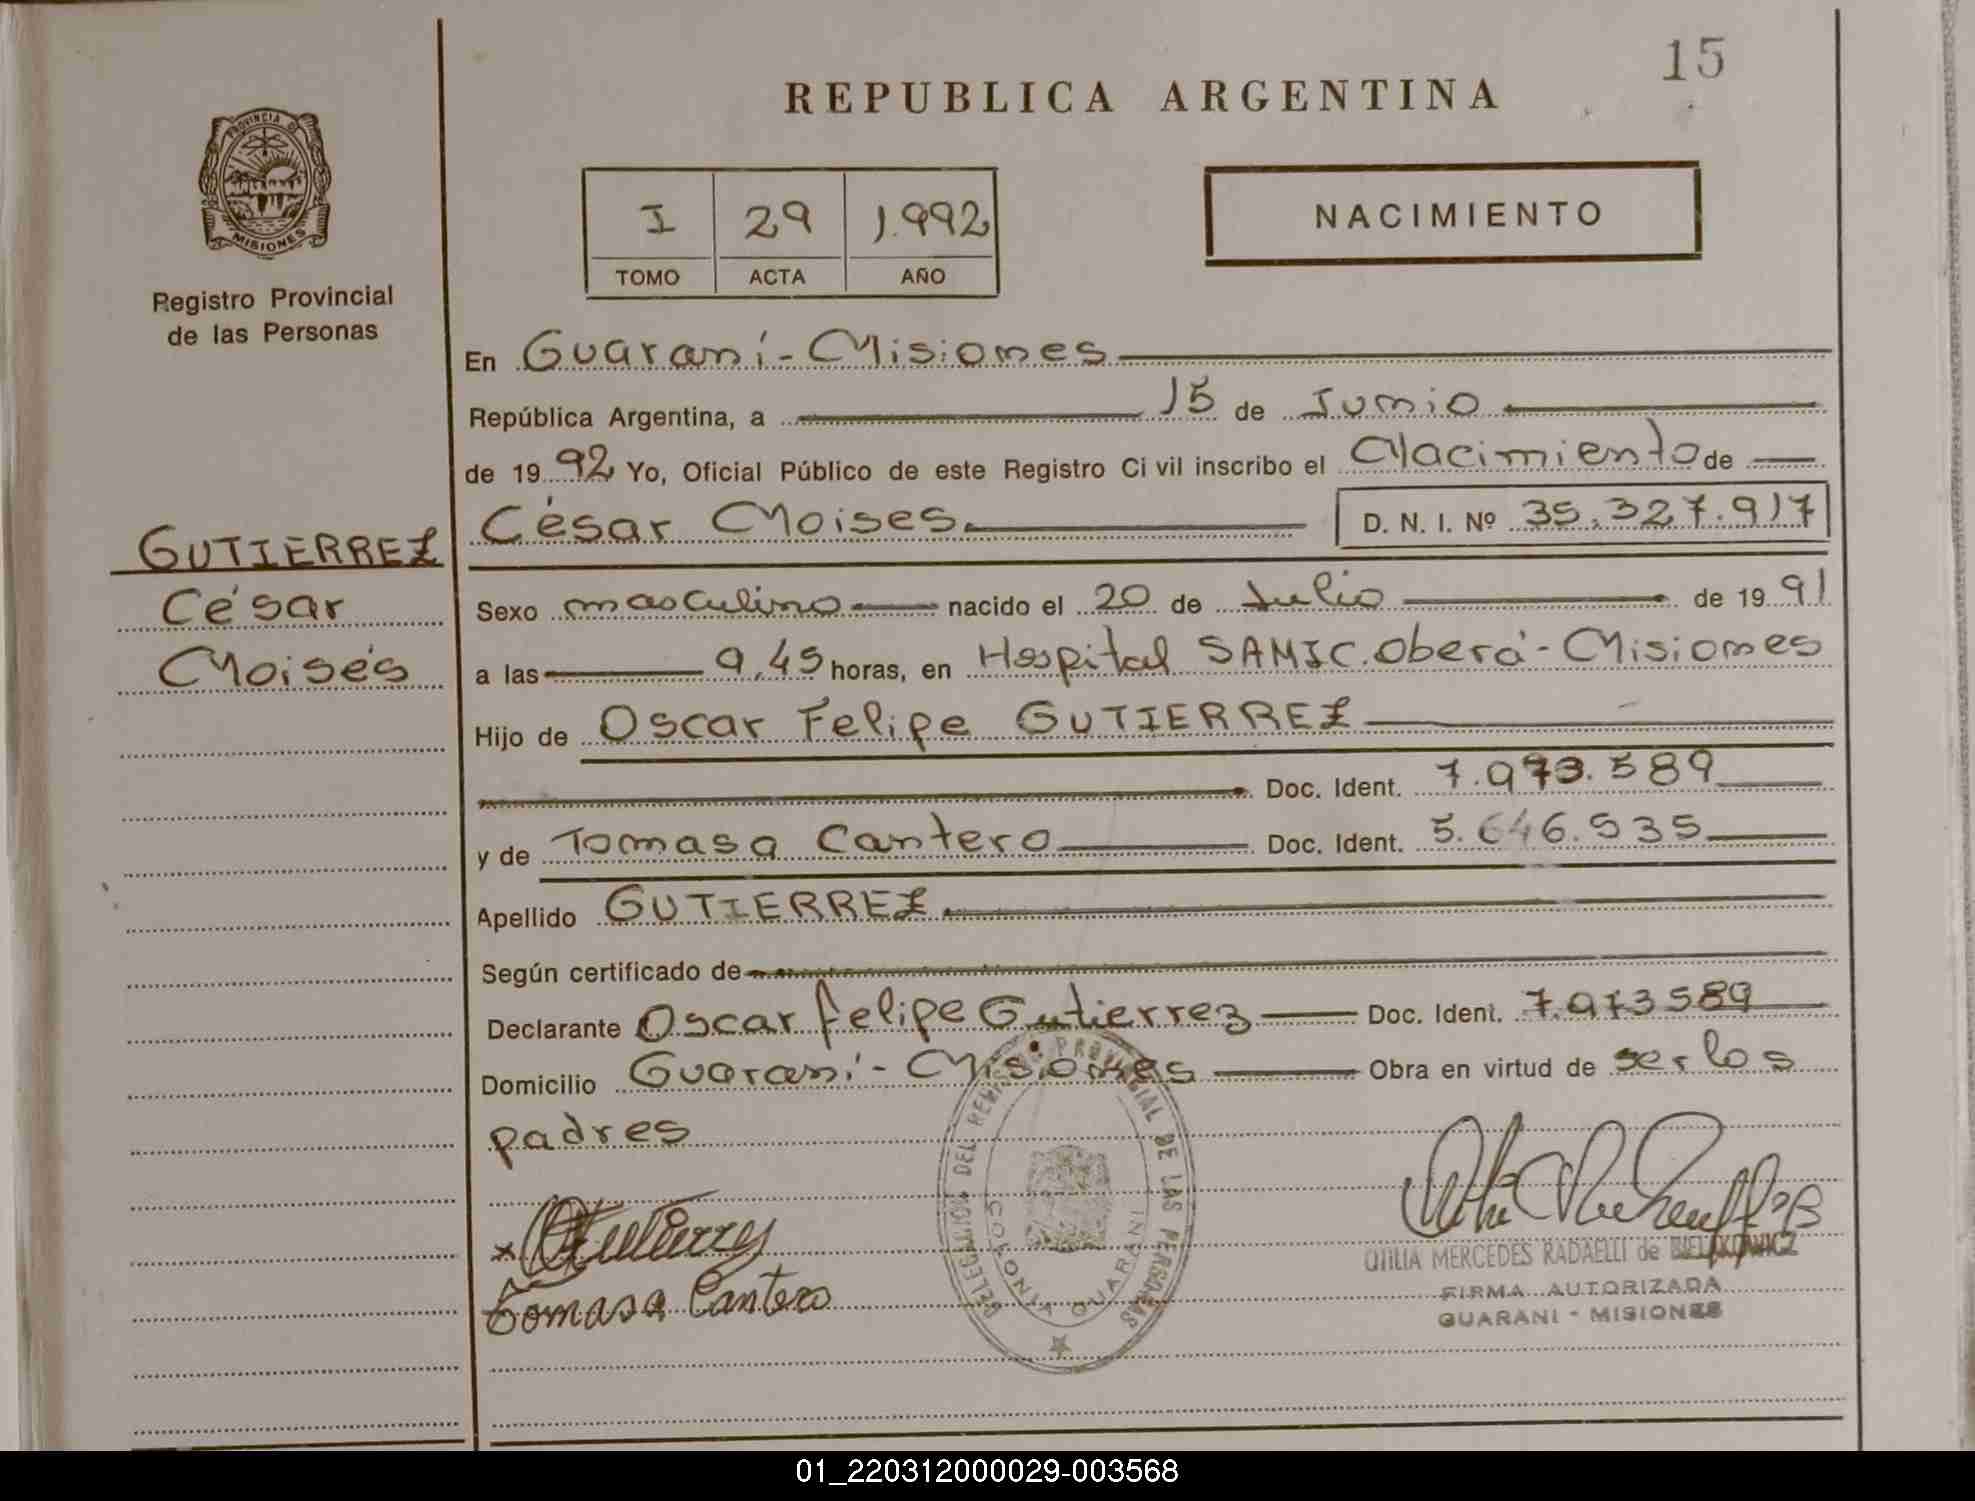 15
REPUBLICA ARGENTINA
PROVINCIA DE
MISIONES
Registro Provincial
de las Personas
I 29 1.992
TOMO ACTA AÑO
NACIMIENTO
En Guaraní - Misiones
República Argentina, a 15 de Junio
de 1992 Yo, Oficial Público de este Registro Civil inscribo el Nacimiento de
César Moises D. N. I. Nº 35.327.917
GUTIERREZ
César
Moisés
Sexo masculino nacido el 20 de Julio de 1991
a las 9,45 horas, en Hospital SAMIC. Oberá - Misiones
Hijo de Oscar Felipe GUTIERREZ
Doc. Ident. 7.973.589
y de Tomasa Cantero Doc. Ident. 5.646.535
Apellido GUTIERREZ
Según certificado de
Declarante Oscar Felipe Gutierrez Doc. Ident. 7.973589
Domicilio Guaraní - Misiones Obra en virtud de ser los
padres
x Gutierrez
Tomasa Cantero
DELEGACION DEL REGISTRO PROVINCIAL DE LAS PERSONAS
COLONIA GUARANI
OTILIA MERCEDES RADAELLI de BIELAKOWICZ
FIRMA AUTORIZADA
GUARANI - MISIONES
01_220312000029-003568